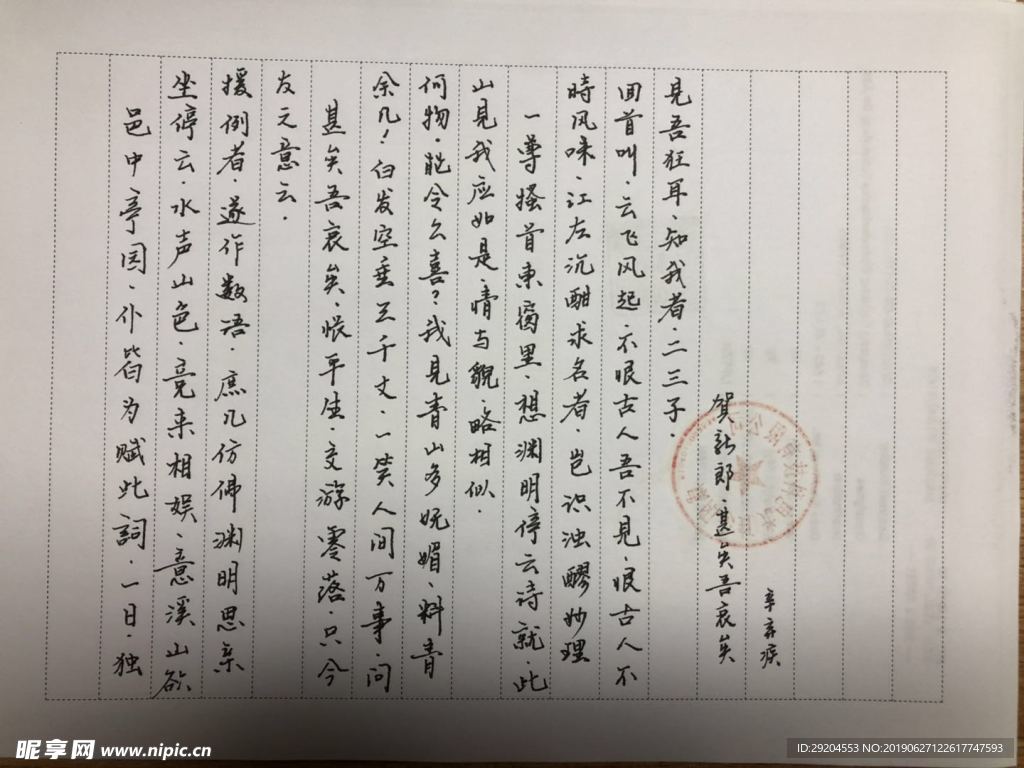 邑中亭园·仆皆为赋此詞·一日·独
坐停云·水声山色·竞来相娱·意溪山欲
援例者·遂作数语·庶几仿佛渊明思亲
友之意云·
甚矣吾衰矣·怅平生·交游零落·只今
余几！白发空垂三千丈·一笑人间万事·问
何物·能令公喜？我见青山多妩媚·料青
山見我应如是·情与貌·略相似·
一尊搔首東窗里·想渊明停云诗就·此
時风味·江左沉酣求名者·岂识浊醪妙理
回首叫·云飞风起·不恨古人吾不见·恨古人不
見吾狂耳·知我者·二三子·
贺新郎·甚矣吾衰矣
辛弃疾
昵享网 www.nipic.cn
ID:29204553 NO:20190627122617747593